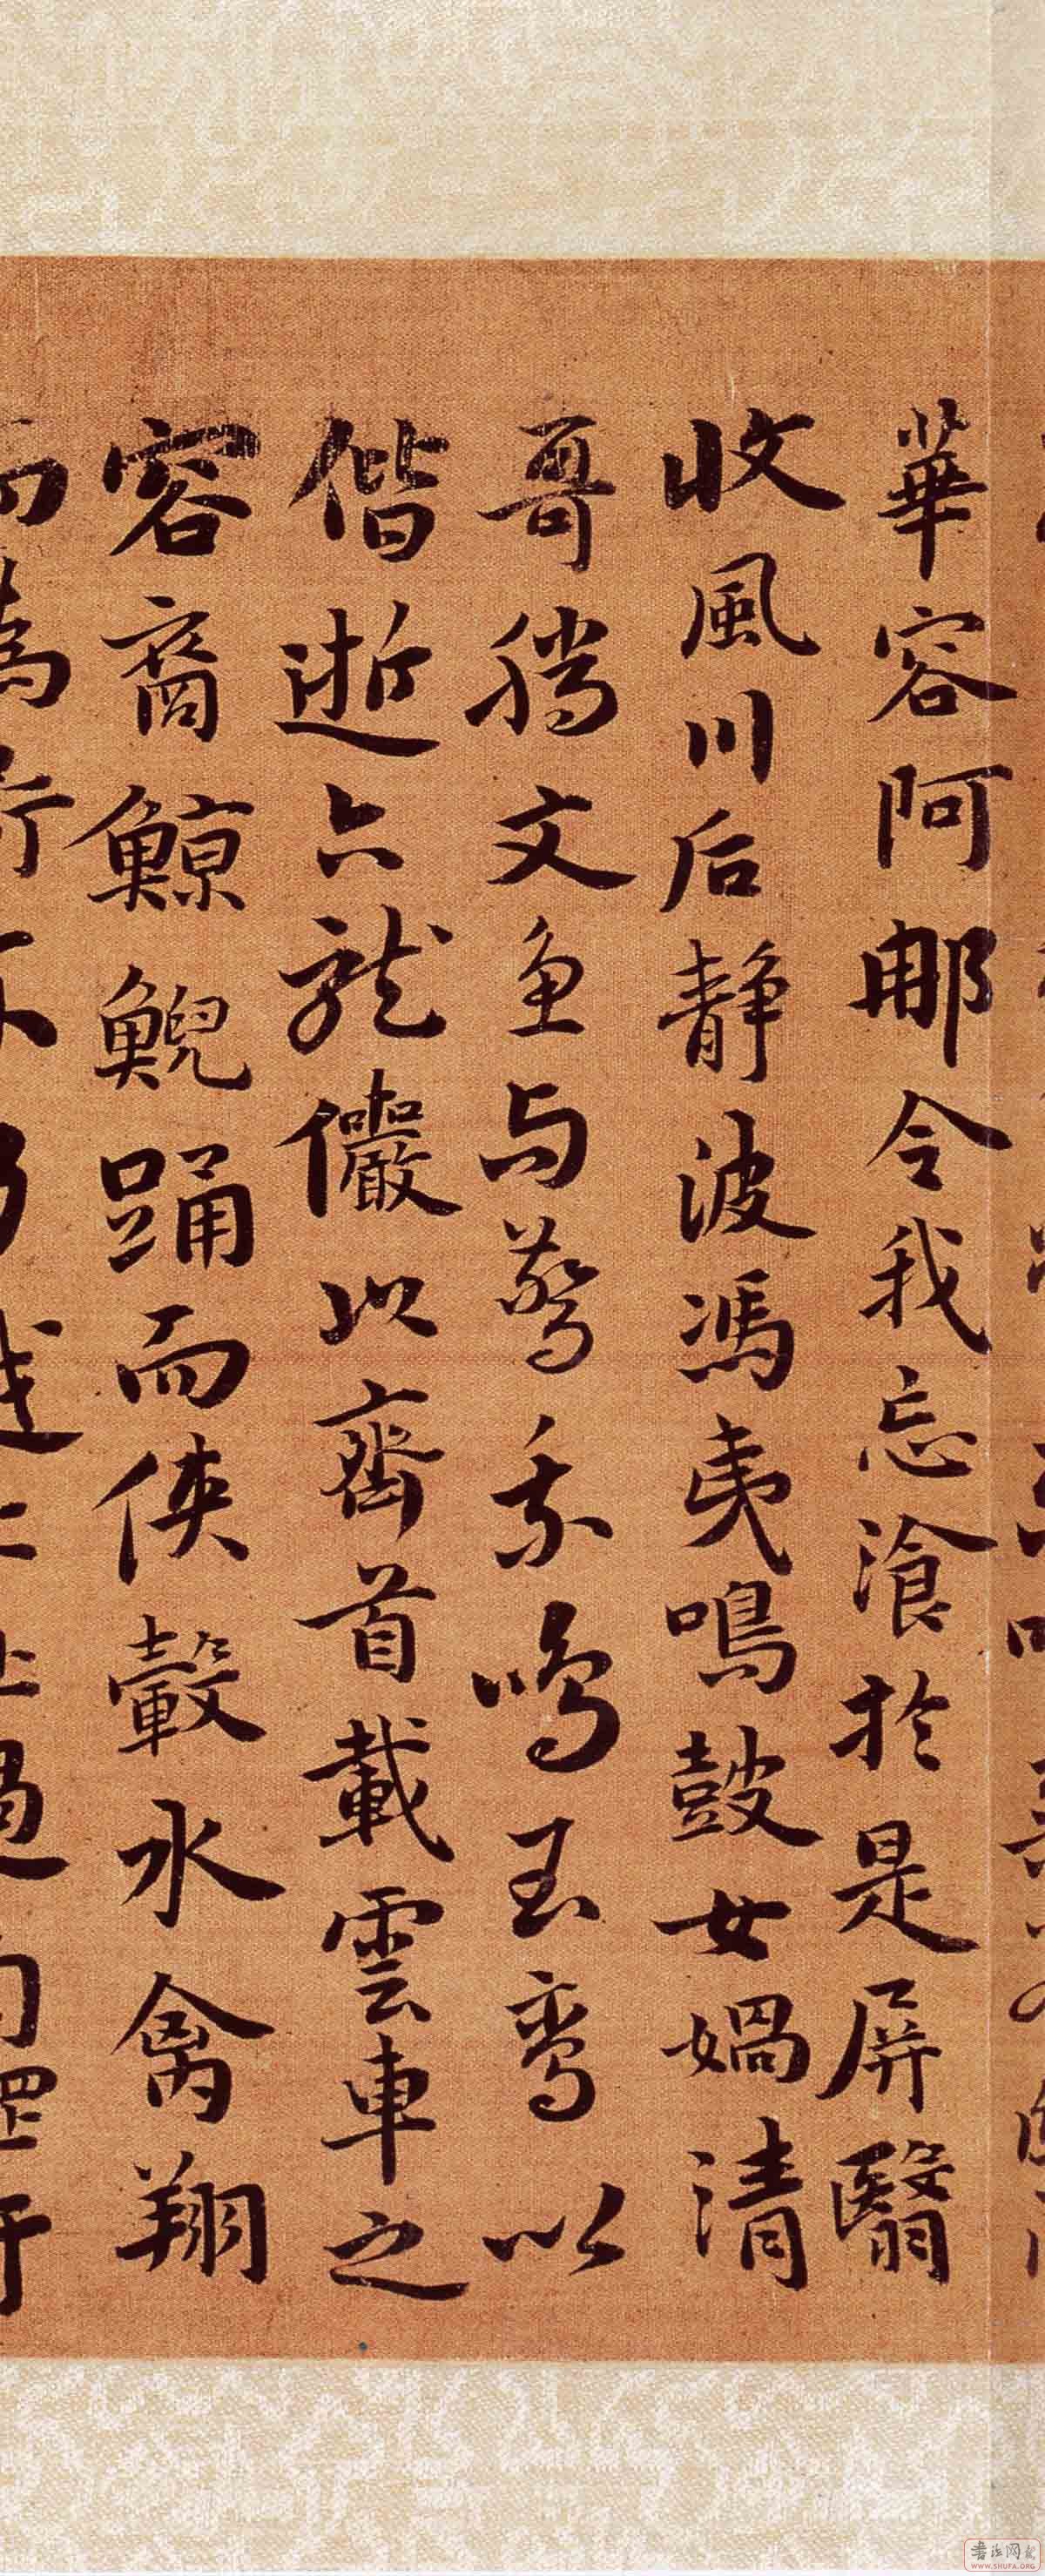 華容阿那令我忘飡於是屏翳
收風川后靜波馮夷鳴鼓女媧清
哥騰文魚与警乘鳴玉鸾以
偕逝六龍儼以齊首載雲車之
容裔鯨鯢踊而俠轂水禽翔
書法网
WWW.SHUFA.ORG